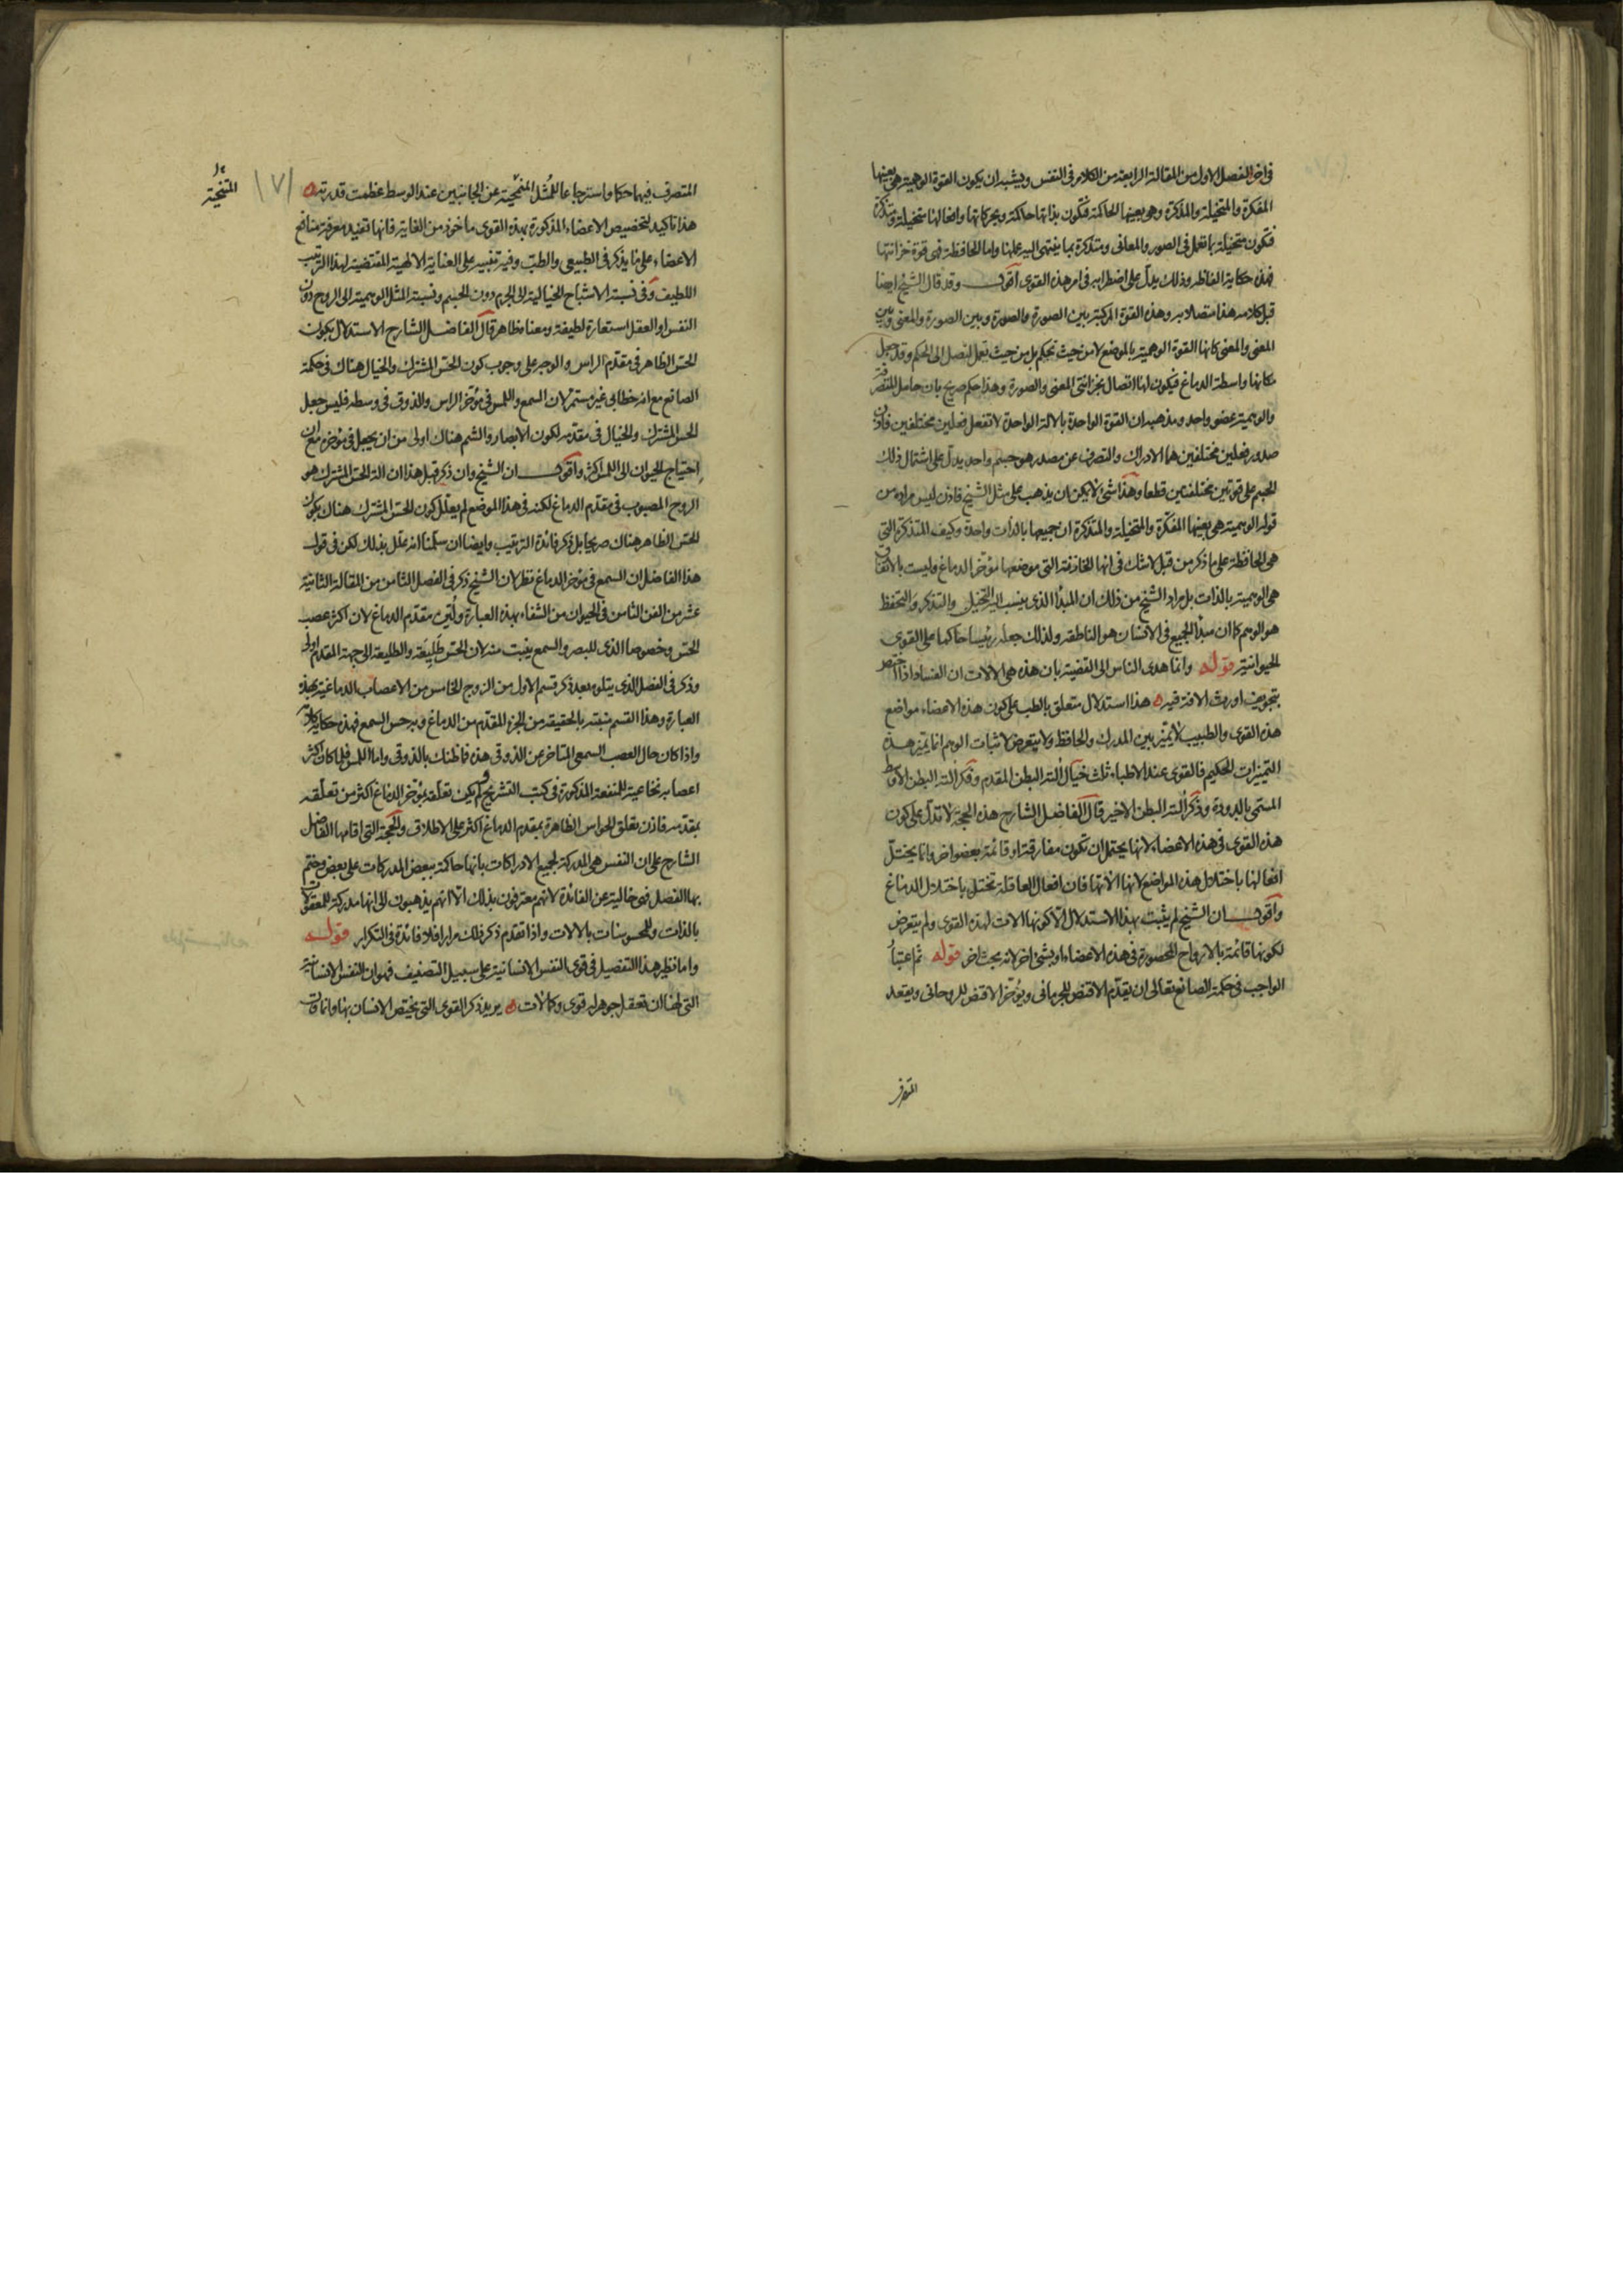 في آخر الفصل الاول من المقالة الرابعة من الكلام في النفس ويشبه ان يكون القوة الوهمية هي بعينها
المفكرة والمتخيلة والمذكرة وهي بعينها الحاكمة فتكون بذاتها حاكمة وبحركاتها وافعالها متخيلة ومتذكرة
فتكون متخيلة بما تعمل في الصور والمعاني ومتذكرة بما ينتهي اليه عملها واما الحافظة فهي قوة خزانتها
فهذه حكاية الفاظه وذلك يدل على اضطرابه في امر هذه القوى اقول وقد قال الشيخ ايضا
قبل كلامه هذا متصلا به وهذه القوة المركبة بين الصورة والصورة وبين الصورة والمعنى وبين
المعنى والمعنى كانها القوة الوهمية بالموضع لا من حيث تحكم بل من حيث تعمل لتصل الى الحكم وقد جعل
مكانها واسطة الدماغ فيكون لها اتصال بخزانتي المعنى والصورة وهذا حكم صريح بان حامل المتصرفة
والوهمية عضو واحد ومذهبه ان القوة الواحدة بالالة الواحدة لا تفعل فعلين مختلفين فاذن
صدور فعلين مختلفين هما الادراك والتصرف عن مصدر هو جسم واحد يدل على اشتمال ذلك
الجسم على قوتين مختلفتين قطعا وهذا شئ لا يمكن ان يذهب على مثل الشيخ فاذن ليس مراده من
قوله الوهمية هي بعينها المفكرة والمتخيلة والمتذكرة ان جميعها بالذات واحدة وكيف المتذكرة التي
هي الحافظة على ما ذكر من قبل لا شك في انها الخازنة التي موضعها مؤخر الدماغ وليست بالاتفاق
هي الوهمية بالذات بل مراد الشيخ من ذلك ان المبدأ الذي ينسب اليه التخيل والتذكر والتحفظ
هو الوهم كما ان مبدأ الجميع في الانسان هو الناطقة ولذلك جعله رئيسا حاكما على القوى
الحيوانية قوله وانما هدى الناس الى القضية بان هذه هي الالات ان الفساد اذا اختص
بتجويف اورث الافة فيه هذا استدلال متعلق بالطب على كون هذه الاعضاء مواضع
هذه القوى والطبيب لا يميز بين المدرك والحافظ ولا يتعرض لاثبات الوهم انما يتميز هذه
التمييزات الحكيم فالقوى عند الاطباء ثلث خيال آلته البطن المقدم وفكر آلته البطن الاوسط
المسمى بالدودة وذكر آلته البطن الاخير قال الفاضل الشارح هذه الحجة لا تدل على كون
هذه القوى في هذه الاعضاء لانها يحتمل ان تكون مفارقة او قائمة بعضو اخر وانما يختل
افعالها باختلال هذه المواضع لانها آلاتها فان افعال العاقلة تختل باختلال الدماغ
واقول ان الشيخ لم يثبت بهذا الاستدلال الا كونها الات لهذه القوى ولم يتعرض
لكونها قائمة بالارواح المحصورة في هذه الاعضاء او بشئ اخر لانه بحث اخر قوله ثم اعتبار
الواجب في حكمة الصانع تعالى ان يقدم الاقنص للجرماني ويؤخر الاقنص للروحاني ويقعد
المتصرف
المتصرف فيها حكما واسترجاعا للمثل المنمحية عن الجانبين عند الوسط عظمت قدرته
هذا تاكيد لتخصيص الاعضاء المذكورة بهذه القوى ماخوذ من الغاية فانها تفيد معرفة منافع
الاعضاء على ما يذكر في الطبيعي والطب وفيه تنبيه على العناية الالهية المقتضية لهذا الترتيب
اللطيف وفي نسبة الاشباح الخيالية الى الجرم دون الجسم ونسبة المثل الوهمية الى الروح دون
النفس او العقل استعارة لطيفة ومعناه ظاهر قال الفاضل الشارح الاستدلال بكون
الحس الظاهر في مقدم الراس والوجه على وجوب كون الحس المشترك والخيال هناك في حكمة
الصانع مع انه خطابي غير مستمر لان السمع واللمس في مؤخر الراس والذوق في وسطه فليس جعل
الحس المشترك والخيال في مقدمه لكون الابصار والشم هناك اولى من ان يجعل في مؤخره مع ان
احتياج الحيوان الى اللمس اكثر واقول ان الشيخ وان ذكر قبل هذا ان آلة الحس المشترك هو
الروح المصبوب في مقدم الدماغ لكنه في هذا الموضع لم يعلل كون الحس المشترك هناك بكون
الحس الظاهر هناك صريحا بل ذكر فائدة الترتيب وايضا ان سلمنا انه علل بذلك لكن في قول
هذا الفاضل ان السمع في مؤخر الدماغ نظر لان الشيخ ذكر في الفصل الثامن من المقالة الثانية
عشر من الفن الثامن في الحيوان من الشفاء بهذه العبارة ولين مقدم الدماغ لان اكثر عصب
الحس وخصوصا الذي للبصر والسمع ينبت منه لان الحس طليعة والطليعة الى جهة المقدم اولى
وذكر في الفصل الذي يتلوه بعد ذكر قسم الاول من الزوج الخامس من الاعصاب الدماغية بهذه
العبارة وهذا القسم منبته بالحقيقة من الجزء المقدم من الدماغ وبه حس السمع فهذه حكاية كلامه
واذا كان حال العصب السمعي المتاخر عن الذوقي هذه فما ظنك بالذوقي واما اللمس فلما كان اكثر
اعصابه نخاعية للمنفعة المذكورة في كتب التشريح ولم يكن تعلقه بمؤخر الدماغ اكثر من تعلقه
بمقدمه فاذن تعلق الحواس الظاهرة بمقدم الدماغ اكثر على الاطلاق والحجة التي اقامها الفاضل
الشارح على ان النفس هي المدركة لجميع الادراكات بانها حاكمة ببعض المدركات على بعض وختم
بها الفصل فهي خالية عن الفائدة لانهم معترفون بذلك الا انهم يذهبون الى انها مدركة للمعقولات
بالذات وللمحسوسات بالالات واذا تقدم ذكر ذلك مرارا فلا فائدة في التكرار قوله
واما نظير هذا التفصيل في قوى النفس الانسانية على سبيل التصنيف فهو ان النفس الانسانية
التي لها ان تعقل جوهر له قوى وكمالات يريد ذكر القوى التي يختص الانسان بها وانما قال